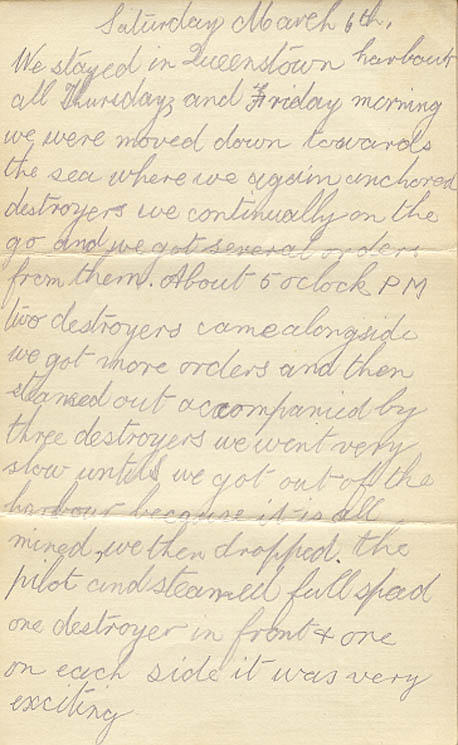 Saturday March 6th.
We stayed in Queenstown harbour
all Thursday, and Friday morning
we were moved down towards
the sea where we again anchored
destroyers we continually on the
go and we got several orders
from them. About 5 oclock PM
two destroyers came alongside
we got more orders and then
steamed out accompanied by
three destroyers we went very
slow until we got out of the
harbour because it is all
mined, we then dropped the
pilot and steamed full spead
one destroyer in front & one
on each side it was very
exciting